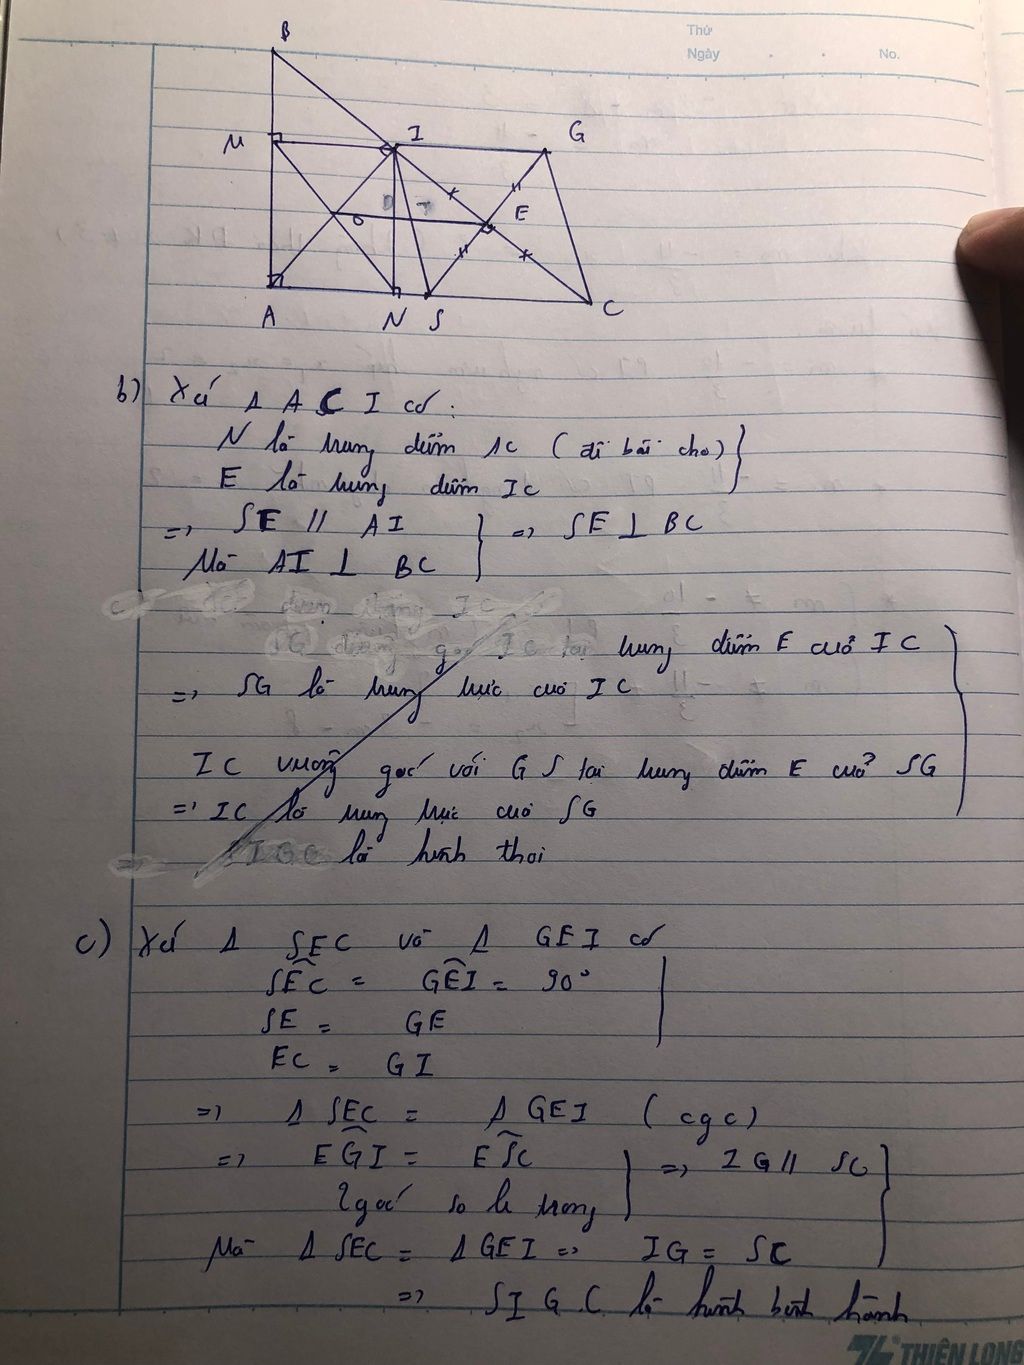 Thứ
Ngày . . No.
B
M I G
O E
A N S C
b) Xét Δ A C I có :
N là trung điểm AC ( đề bài cho )
E là trung điểm IC
=> SE // AI => SE ⊥ BC
Mà AI ⊥ BC
trung điểm E của IC
=> SG là trung trực của IC
IC vuông góc với G S tại trung điểm E của SG
=> IC là trung trực của SG
=> SIGC là hình thoi
c) Xét Δ SEC và Δ GEI có
SÊC = GÊI = 90°
SE = GE
EC = GI
=> Δ SEC = Δ GEI ( cgc )
=> EĜI = EŜC => IG // SC
2 góc so le trong
Mà Δ SEC = Δ GEI => IG = SC
=> SIGC là hình bình hành
THIÊN LONG